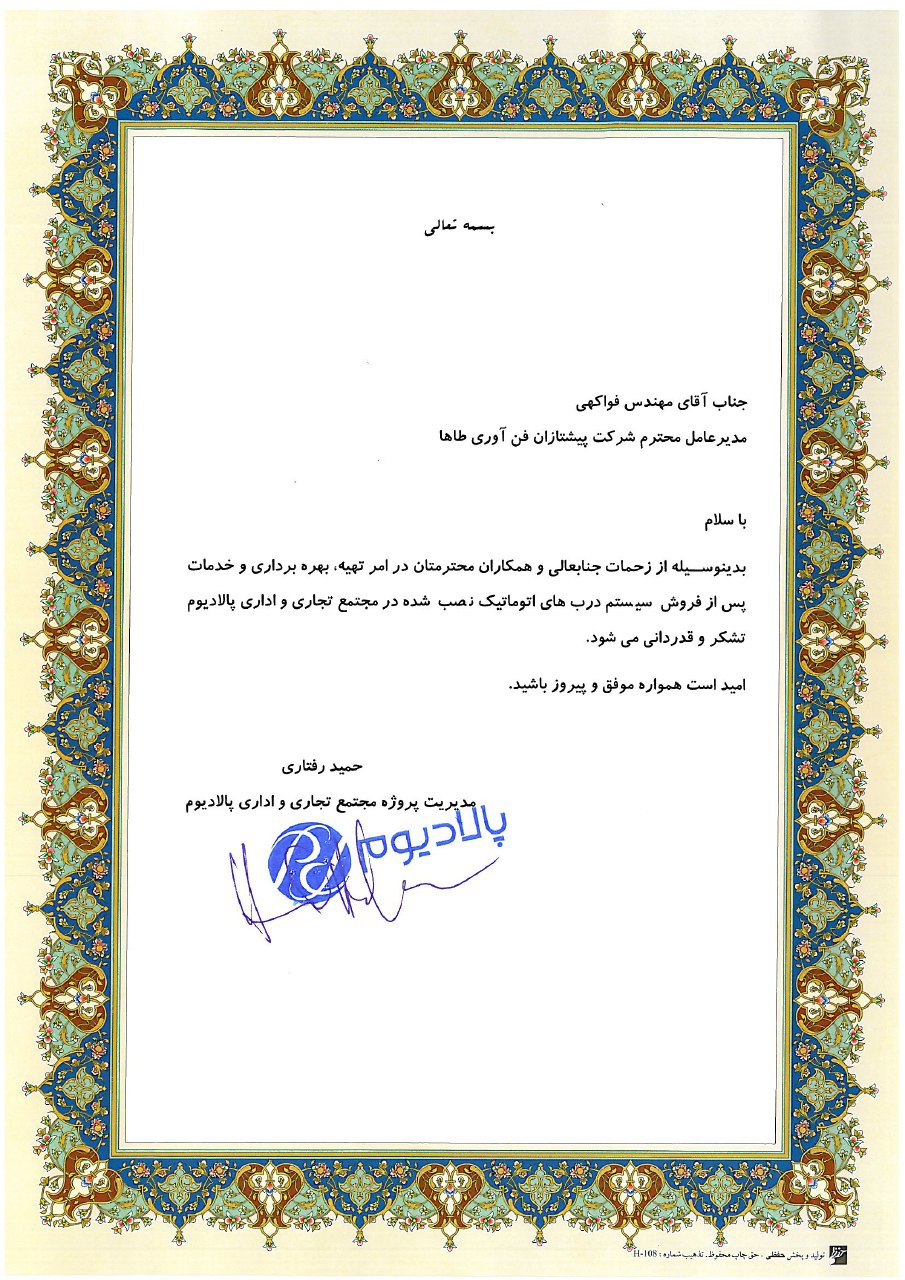 بسمه تعالی
جناب آقای مهندس فواکهی
مدیرعامل محترم شرکت پیشتازان فن آوری طاها
با سلام
بدینوسیله از زحمات جنابعالی و همکاران محترمتان در امر تهیه، بهره برداری و خدمات
پس از فروش سیستم درب های اتوماتیک نصب شده در مجتمع تجاری و اداری پالادیوم
تشکر و قدردانی می شود.
امید است همواره موفق و پیروز باشید.
حمید رفتاری
مدیریت پروژه مجتمع تجاری و اداری پالادیوم
پالادیوم
تولید و پخش حفظی - حق چاپ محفوظ. تذهیب شماره : H-108